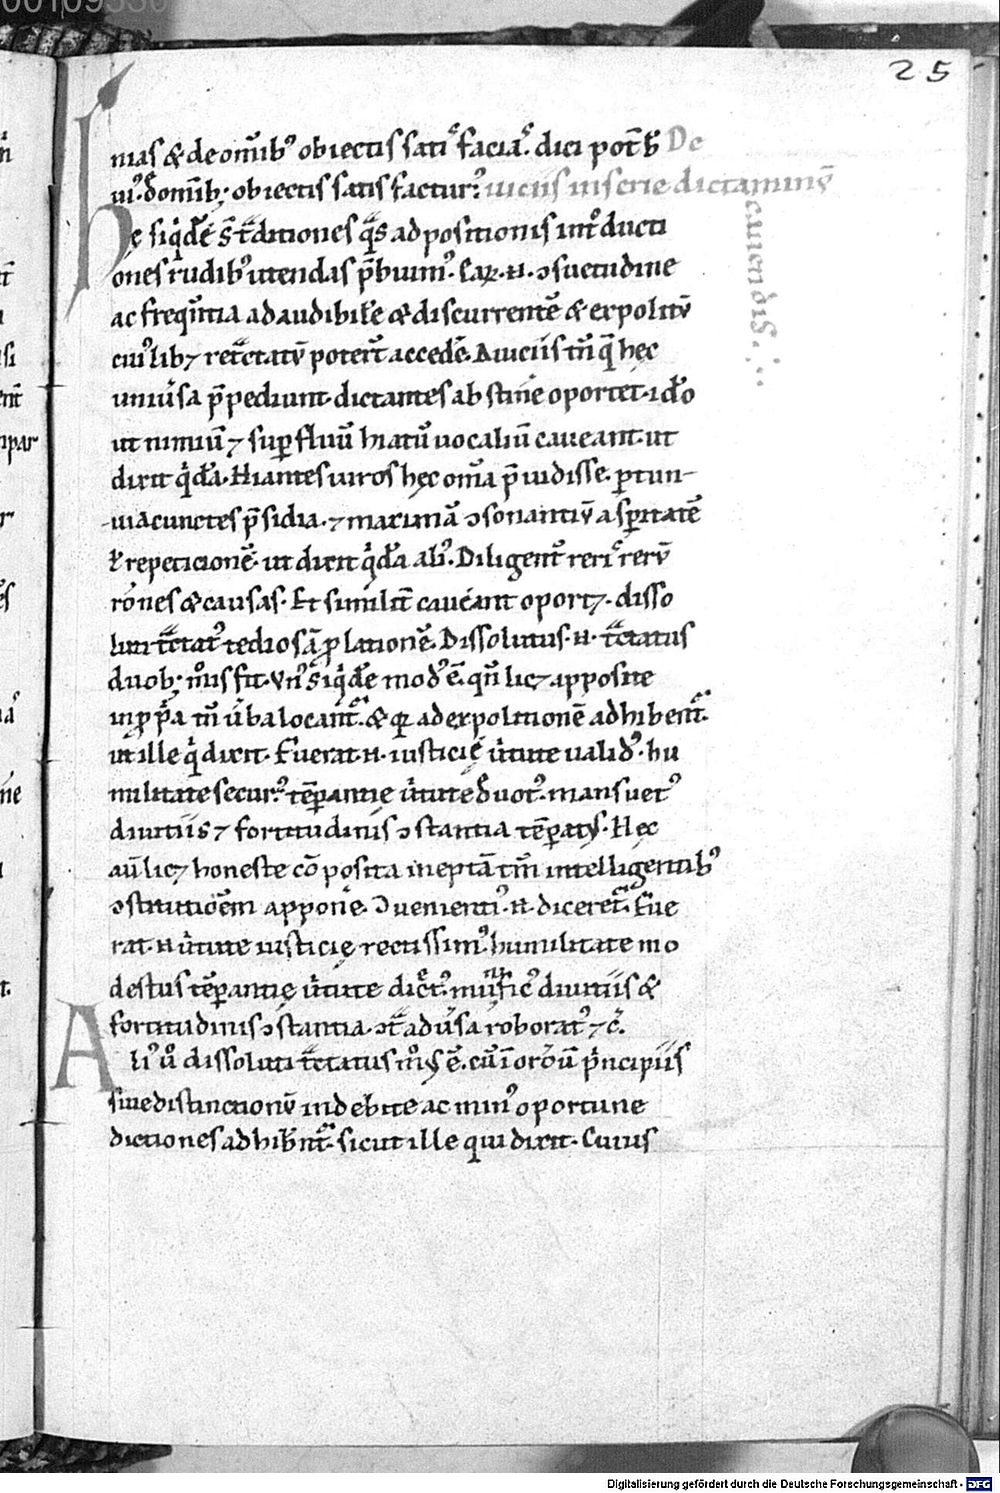 25
nias & de om̅ib⁹ obiectis satiˢ faciaᵐ. dici potᷣ De
ui. & om̅ib; obiectis satis facturᷣ. uiciis in serie dictaminu̅
cauendis.
he siq̇de̅ st̅ traditiones q̅s ad positionis int°ducti
ones rudib⁹ utendas p̅buim⁹. Eaꝝ .n. ↄsuetudine
ac freque̅tia ad audibile & discurrente̅ & expolitu̅
cui⁹lib⁊ tᷓctatu̅ potert̅ accede̅. A uiciis tm̅ q̅ hęc
uniu̅sa p̅pediunt. dictantes abstine̅ oportet. ido̅
ut nimiu̅ ⁊ superfluu̅ hiatu̅ uocaliu̅ caueant. ut
dixit q̇da̅. Hiantes uiros hęc om̅a p̅uidisse. ꝑtun-
uia cunctes p̅sidia. ⁊ maxima̅ ↄsonantiu̅ asꝑitate̅
ł repeticione̅. ut dixit q̇da̅ ali⁹. Diligent̅ reri᷒ reru̅
ro̅nes & causas. Et similit̅ caueant oport⁊. disso
luti tᷓctat⁹ tediosa̅ ꝓlatione̅. Dissolutus .n. tᷓctatus
duob; m°is fit. Vn⁹ siq̇de̅ mod⁹ e̅. qn̅ lic⁊ apposite
inꝓp̅a tm̅ u̅ba locantᷓ. & q̅ ad expolitione̅ adhibentᷓ.
ut ille q̇ dixit. Fuerat .n. iusticię u̅tute ualid⁹. hu
militate secur⁹. te̅ꝑantię u̅tute d̅uot⁹. mansuet⁹
diuitiis ⁊ fortitudinis ↄstantia te̅ꝑat⁹. Hęc
au̅ lic⁊ honeste co̅posita inepta̅ tm̅ intelligentib⁹
ↄstitutio̅em apponę. ↄuenienti⁹ .n. diceretᷓ. Fue
rat .n. u̅tute iusticię rectissim⁹. humilitate mo
destus te̅ꝑantię u̅tute diᷓct⁹. munific⁹ diuitiis &
fortitudinis ↄstantia. ↄt̅ adu̅sa roborat⁹ ⁊c̅.
Ali⁹ u̅ dissoluti tᷓctatus m°⁹ e̅. cu̅ i̅ or̅onu̅ p̅ncipiis
siue distinctionu̅ indebite ac min⁹ oportune
dictiones adhibe̅ntᷓ. sicut ille qui dixit. Cuius
Digitalisierung gefördert durch die Deutsche Forschungsgemeinschaft - DFG